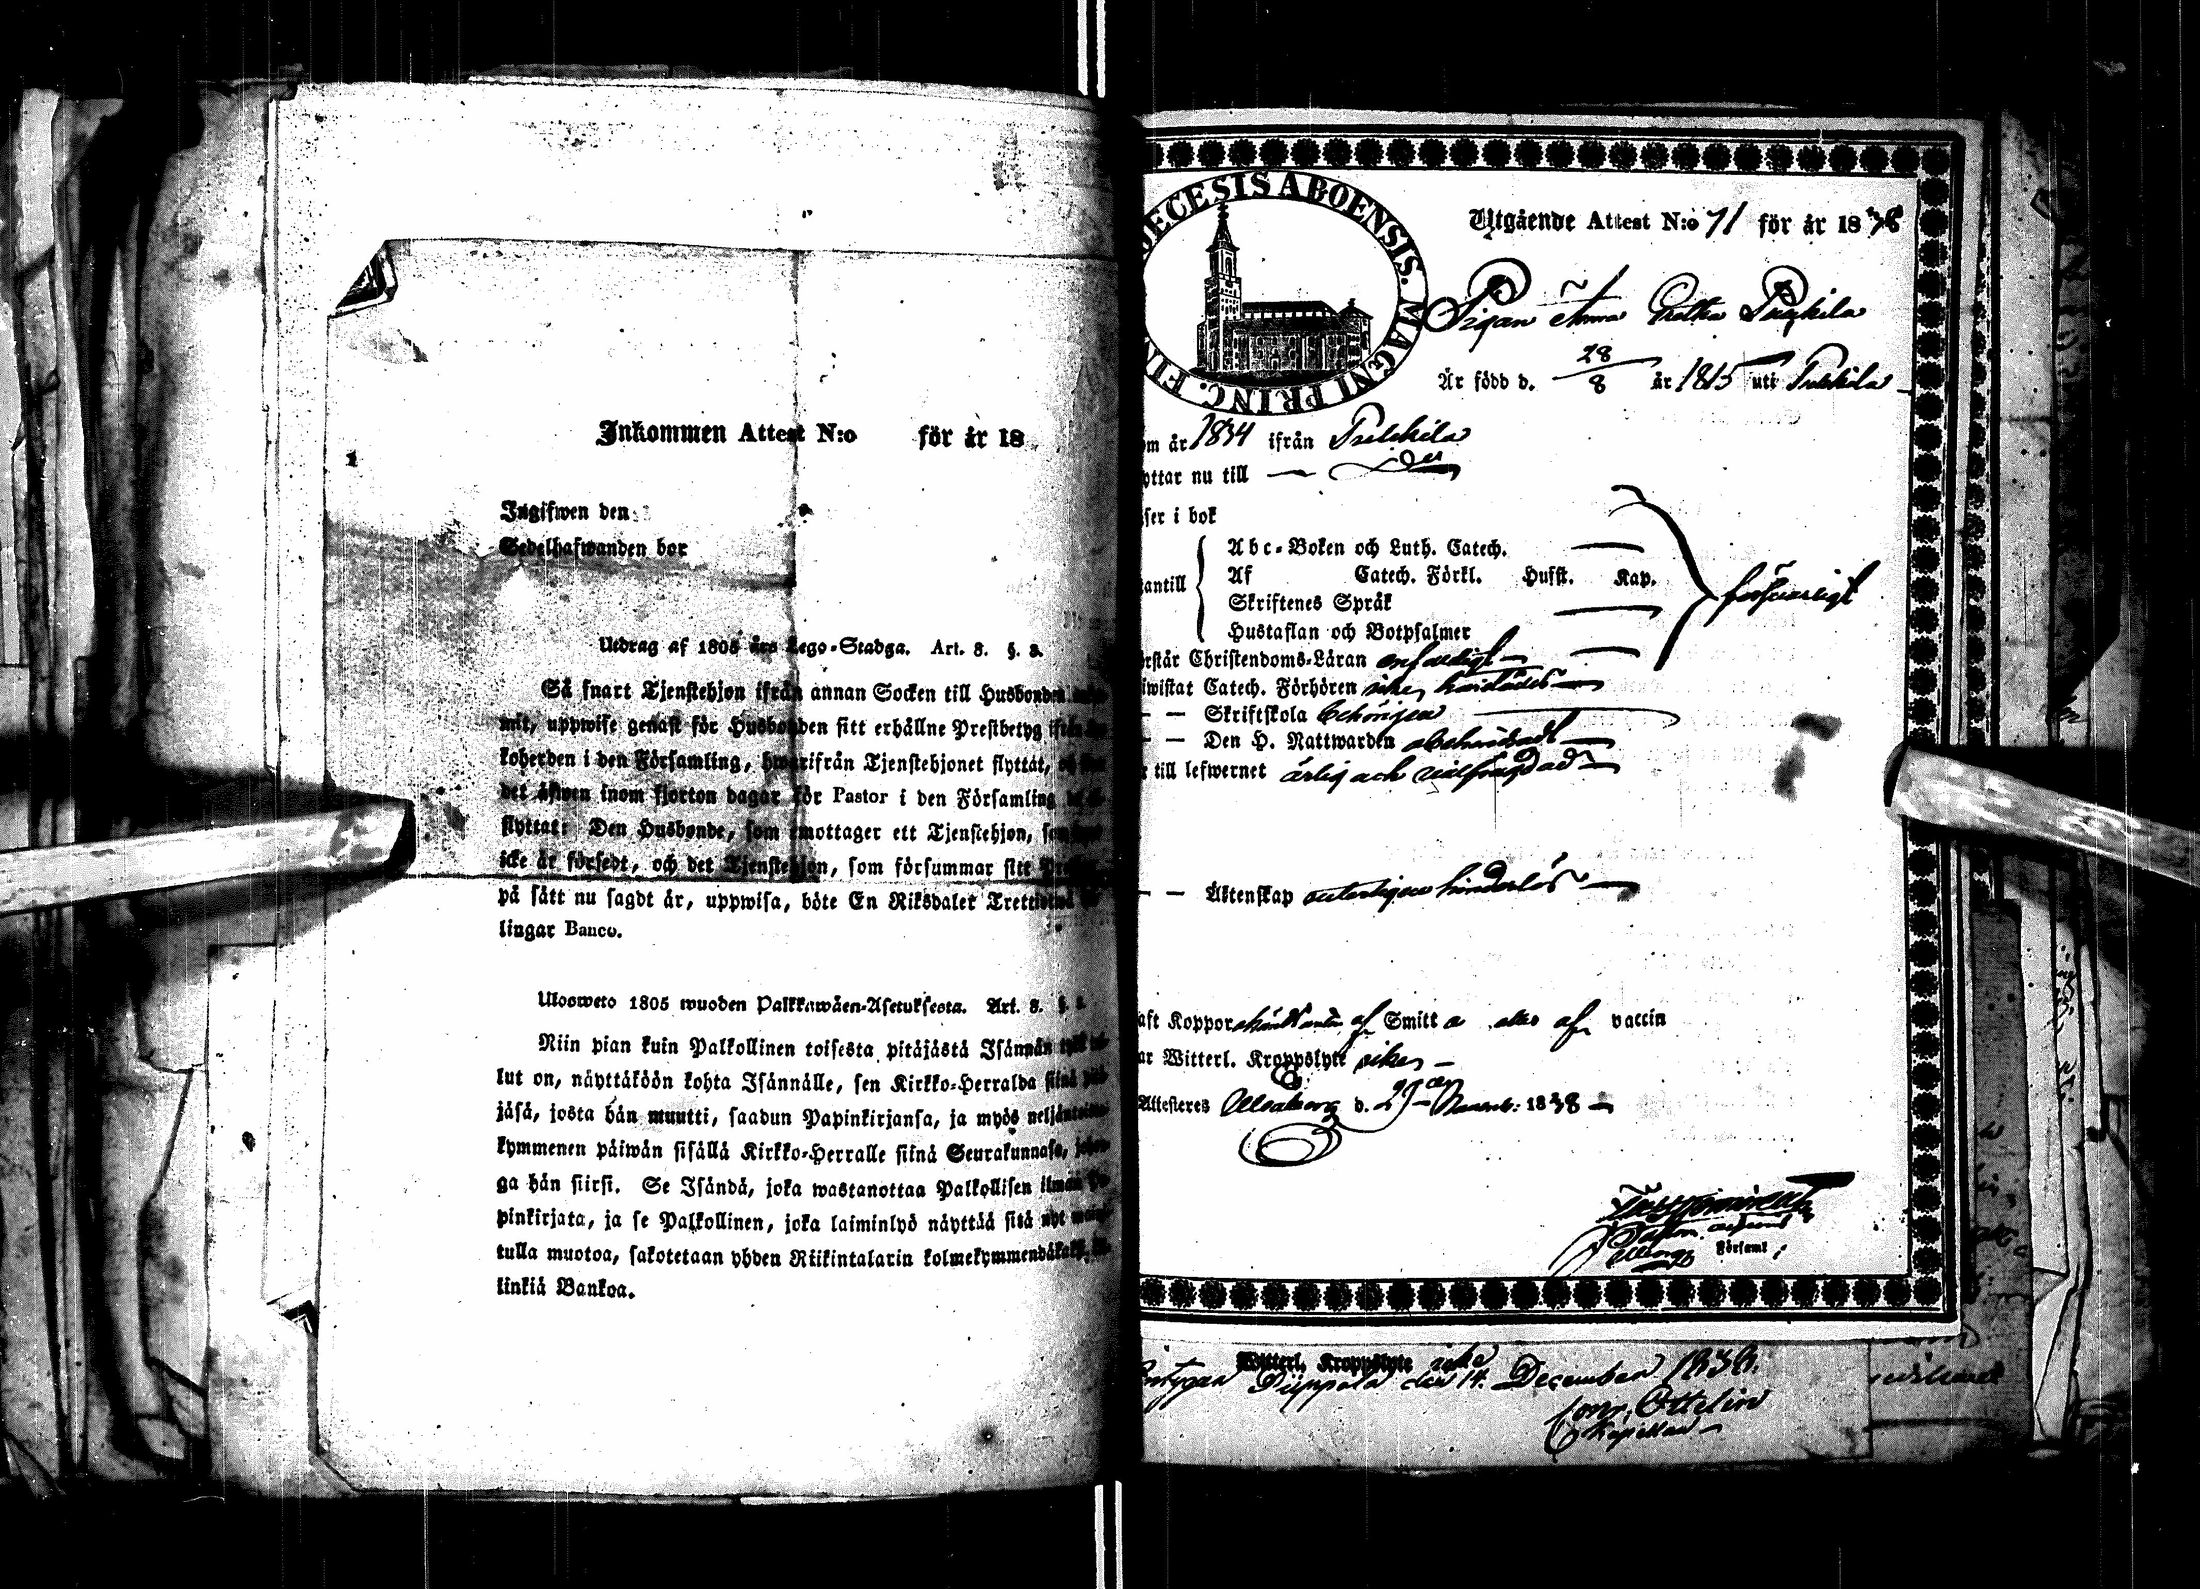 Inkommen Attest N:o för år 18
Ingifwen den
Sedelhafwanden bor
Utdrag af 1805 års Lego-Stadga. Art. 8. §. 3.
Så snart Tjenstehjon ifrån annan Socken till Husbonden
mit, uppwise genast för Husbonden sitt erhållne Prestbetyg ifrån
koherden i den Församling, hwarifrån Tjenstehjonet flyttat,
det äfwen inom fjorton dagar för Pastor i den Församling
flyttat: Den Husbonde, som emottager ett Tjenstehjon,
icke är försedt, och det Tjenstehjon, som försummar sitt
på sätt nu sagdt är, uppwisa, böte En Riksdaler
lingar Banco.
Ulosweto 1805 wuoden Palkkawäen-Asetuksesta. Art. 8. §.
Niin pian kuin Palkollinen toisesta pitäjästä Isännän
lut on, näyttäköön kohta Isännälle, sen Kirkko-Herralda siinä
jäsä, josta hän muutti, saadun Papinkirjansa, ja myös
kymmenen päiwän sisällä Kirkko-Herralle siinä Seurakunnasa,
ga hän siirsi. Se Isändä, joka wastanottaa Palkollisen ilman
pinkirjata, ja se Palkollinen, joka laiminlyö näyttää sitä nyt
tulla muotoa, sakotetaan yhden Riikintalarin
linkiä Bankoa.
DIECESIS ABOENSIS. MAGNI PRINC. FIN
Utgående Attest N:o 71 för år 1838
Pigan Anna
Är född d. 28/8 år 1815 uti Pulkkila
om år 1834 ifrån Pulkkila
yttar nu till
ser i bok
antill
Abc-Boken och Luth. Catech.
Af Catech. Förkl. Husst. Kap.
Skriftenes Språk
Hustaflan och Botpsalmer
försvarligt
rstår Christendoms-Läran enfaldigt
iwistat Catech. Förhören
Skriftskola behörigen
Den H. Nattwarden
r till lefwernet ärlig och välfrägdad
Äktenskap veterligen hinderlös
aft Koppor af Smitta eller af vaccin
ar Witterl. Kroppslyte
Attesteres Uleåborg d. 29 1838
Församl
Witterl. Kroppslyte icke
Piippola den 14. December 1838.
Kapellan